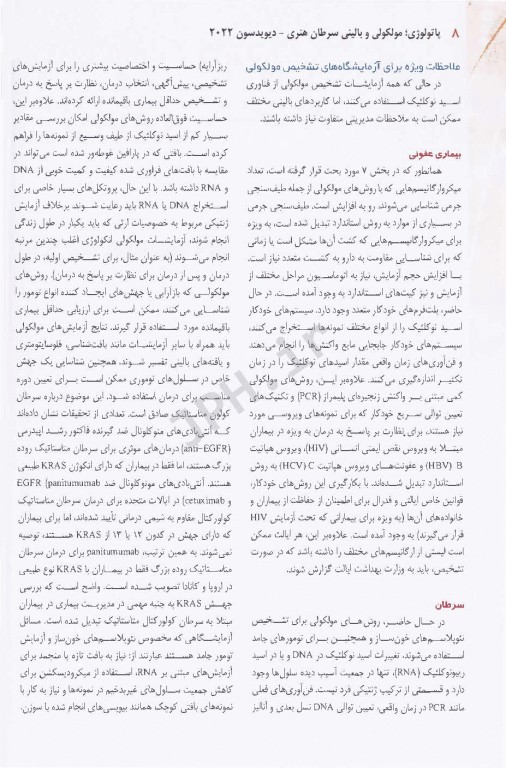 ۸ پاتولوژی؛ مولکولی و بالینی سرطان هنری - دیویدسون ۲۰۲۲
ملاحظات ویژه برای آزمایشگاه‌های تشخیص مولکولی
در حالی که همه آزمایشات تشخیص مولکولی از فناوری
اسید نوکلئیک استفاده می‌کنند، اما کاربردهای بالینی مختلف
ممکن است به ملاحظات مدیریتی متفاوت نیاز داشته باشند.
بیماری عفونی
همانطور که در بخش ۷ مورد بحث قرار گرفته است، تعداد
میکروارگانیسم‌هایی که با روش‌های مولکولی از جمله طیف‌سنجی
جرمی شناسایی می‌شوند، رو به افزایش است. طیف‌سنجی جرمی
در بسیاری از موارد به روش استاندارد تبدیل شده است، به ویژه
برای میکروارگانیسم‌هایی که کشت آن‌ها مشکل است یا زمانی
که برای شناسایی مقاومت به دارو به کشت متعدد نیاز است.
با افزایش حجم آزمایش، نیاز به اتوماسیون مراحل مختلف از
آزمایش و نیز کیت‌های استاندارد به وجود آمده است. در حال
حاضر، پلت‌فرم‌های خودکار متعدد وجود دارد. سیستم‌های خودکار
اسید نوکلئیک را از انواع مختلف نمونه‌ها استخراج می‌کنند،
سیستم‌های خودکار جابجایی مایع واکنش‌ها را انجام می‌دهند
و فن‌آوری‌های زمان واقعی مقدار اسیدهای نوکلئیک را در زمان
تکثیر اندازه‌گیری می‌کنند. علاوه‌بر این، روش‌های مولکولی
کمی مبتنی بر واکنش زنجیره‌ای پلیمراز (PCR) و تکنیک‌های
تعیین توالی سریع خودکار که برای نمونه‌های ویروسی مورد
نیاز هستند، برای نظارت بر پاسخ به درمان به ویژه در بیماران
مبتلا به ویروس نقص ایمنی انسانی (HIV)، ویروس هپاتیت
B (HBV) و عفونت‌های ویروس هپاتیت C (HCV) به روش
استاندارد تبدیل شده‌اند. با بکارگیری این روش‌های خودکار،
قوانین خاص ایالتی و فدرال برای اطمینان از حفاظت از بیماران و
خانواده‌های آن‌ها (به ویژه برای بیمارانی که تحت آزمایش HIV
قرار می‌گیرند) به وجود آمده است. علاوه‌بر این، هر ایالت ممکن
است لیستی از ارگانیسم‌های مختلف را داشته باشد که در صورت
تشخیص، باید به وزارت بهداشت ایالت گزارش شوند.
سرطان
در حال حاضر، روش‌های مولکولی برای تشخیص
نئوپلاسم‌های خون‌ساز و همچنین برای تومورهای جامد
استفاده می‌شوند. تغییرات اسید نوکلئیک در DNA و یا در اسید
ریبونوکلئیک (RNA)، تنها در جمعیت آسیب دیده سلول‌ها وجود
دارد و قسمتی از ترکیب ژنتیکی فرد نیست. فن‌آوری‌های فعلی
مانند PCR در زمان واقعی، تعیین توالی DNA نسل بعدی و آنالیز
ریزآرایه) حساسیت و اختصاصیت بیشتری را برای آزمایش‌های
تشخیصی، پیش‌آگهی، انتخاب درمان، نظارت بر پاسخ به درمان
و تشخیص حداقل بیماری باقیمانده ارائه کرده‌اند. علاوه‌بر این،
حساسیت فوق‌العاده روش‌های مولکولی امکان بررسی مقادیر
بسیار کم از اسید نوکلئیک از طیف وسیع از نمونه‌ها را فراهم
کرده است. بافتی که در پارافین غوطه‌ور شده است می‌تواند در
مقایسه با بافت‌های فراوری شده کیفیت و کمیت خوبی از DNA
و RNA داشته باشد. با این حال، پروتکل‌های بسیار خاصی برای
استخراج DNA یا RNA باید رعایت شوند. برخلاف آزمایش
ژنتیکی مربوط به خصوصیات ارثی که باید یکبار در طول زندگی
انجام شوند، آزمایشات مولکولی آنکولوژی اغلب چندین مرتبه
انجام می‌شوند (به عنوان مثال، برای تشخیص اولیه، در طول
درمان و پس از درمان برای نظارت بر پاسخ به درمان). روش‌های
مولکولی که بازآرایی یا جهش‌های ایجاد کننده انواع تومور را
شناسایی می‌کنند، ممکن است برای ارزیابی حداقل بیماری
باقیمانده مورد استفاده قرار گیرند. نتایج آزمایش‌های مولکولی
باید همراه با سایر آزمایشات مانند بافت‌شناسی، فلوسایتومتری
و یافته‌های بالینی تفسیر شوند. همچنین شناسایی یک جهش
خاص در سلول‌های توموری ممکن است برای تعیین دوره
درمان استفاده شود. این موضوع درباره سرطان
کولون متاستاتیک صادق است. تعدادی از تحقیقات نشان داده‌اند
که آنتی‌بادی‌های منوکلونال ضد گیرنده فاکتور رشد اپیدرمی
(anti-EGFR) درمان‌های موثری برای سرطان متاستاتیک روده
بزرگ هستند، اما فقط در بیماران که دارای انکوژن KRAS طبیعی
هستند. آنتی‌بادی‌های منوکلونال ضد EGFR (panitumumab
و cetuximab) در ایالات متحده برای درمان سرطان متاستاتیک
کولورکتال مقاوم به شیمی درمانی تأیید شده‌اند، اما برای بیماران
که دارای جهش در کدون ۱۲ یا ۱۳ از KRAS هستند، توصیه
نمی‌شوند. به همین ترتیب، panitumumab برای درمان سرطان
متاستاتیک روده بزرگ فقط در بیماران با KRAS نوع طبیعی
در اروپا و کانادا تصویب شده است. واضح است که بررسی
جهش KRAS به جنبه مهمی در مدیریت بیماری در بیماران
مبتلا به سرطان کولورکتال متاستاتیک تبدیل شده است. مسائل
آزمایشگاهی که مخصوص نئوپلاسم‌های خون‌ساز و آزمایش
تومور جامد هستند عبارتند از: نیاز به بافت تازه یا منجمد برای
آزمایش‌های مبتنی بر RNA، استفاده از میکرودیسکشن برای
کاهش جمعیت سلول‌های غیربدخیم در نمونه‌ها و نیاز به کار با
نمونه‌های بافتی کوچک همانند بیوپسی‌های انجام شده با سوزن.